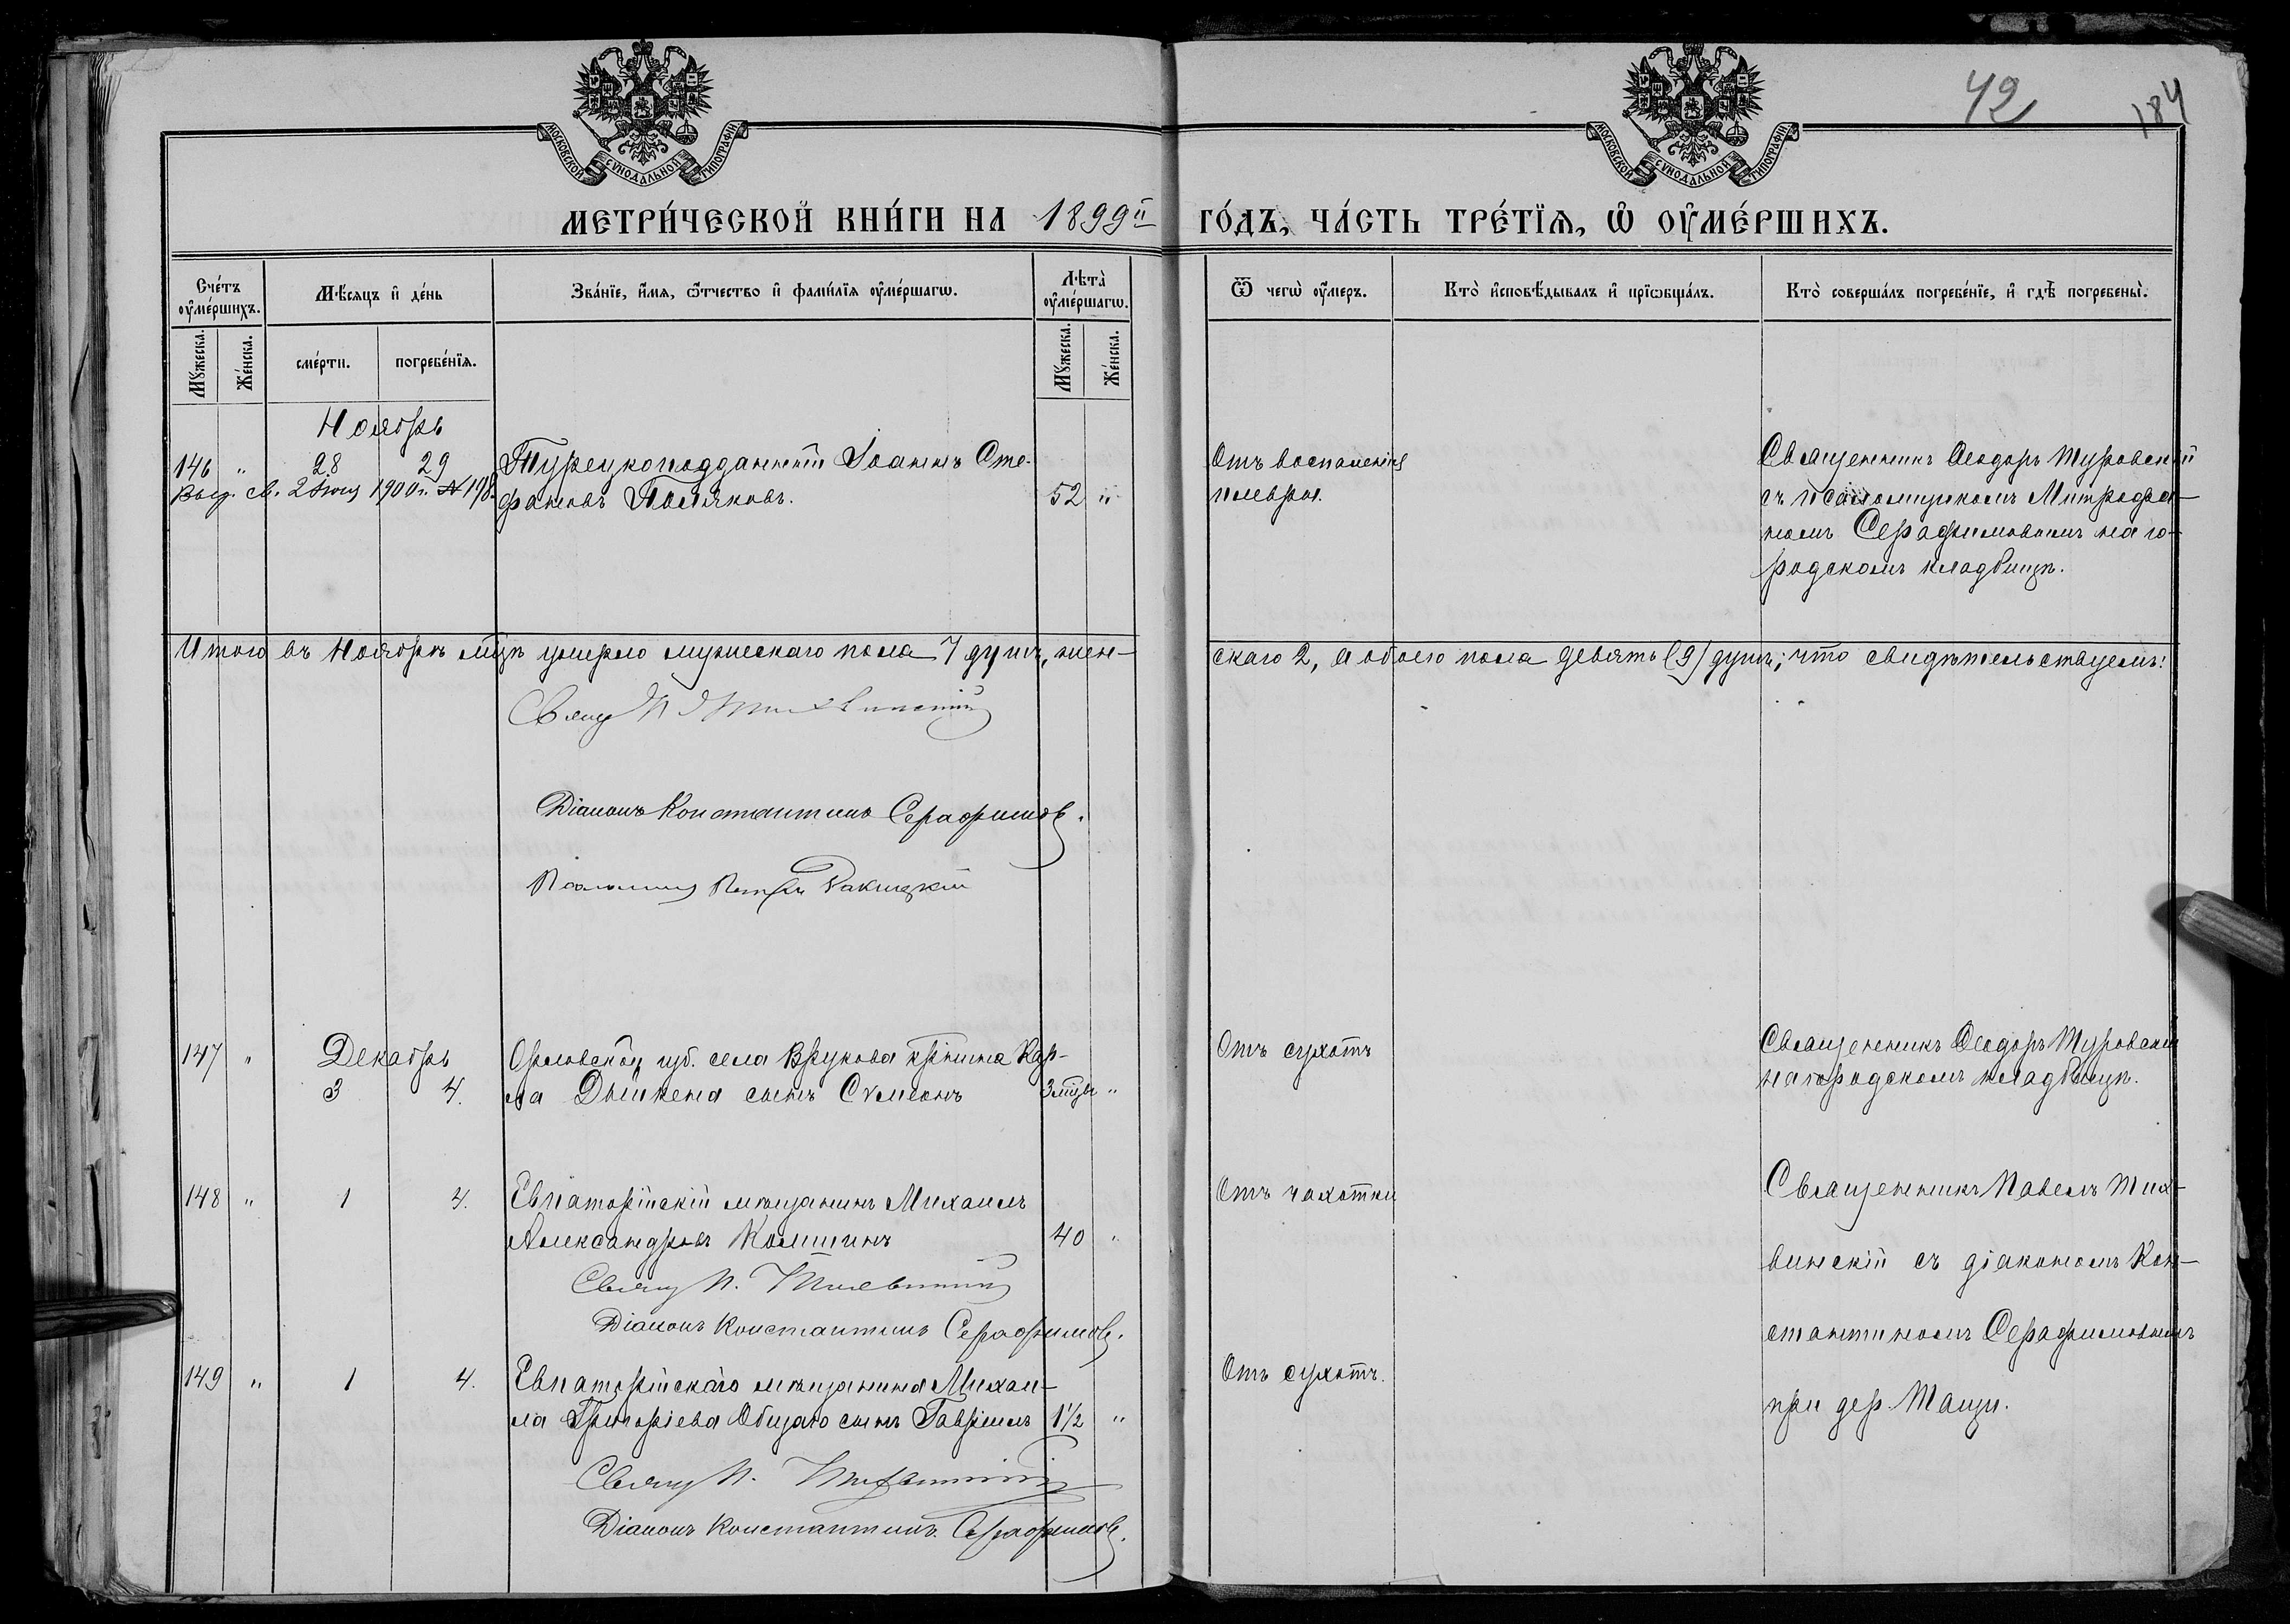 МОСКОВСКОЙ СУНОДАЛЬНОЙ ТИПОГРАФІИ
МОСКОВСКОЙ СУНОДАЛЬНОЙ ТИПОГРАФІИ
42
184
МЕТРИ́ЧЕСКОЙ КНИ́ГИ НА 1899й ГО́ДЪ, ЧА́СТЬ ТРЕ́ТЇѦ, Ѽ ОУ҆МЕ́РШИХЪ.
Сче́тъ оу҆ме́ршихъ.
Мꙋ́жеска.
Же́нска.
Мѣ́сяцъ и҆ де́нь
сме́рти.
погребе́нїя.
Зва́нїе, и҆́мя, ѻ҆́тчество и҆ фами́лїя оу҆ме́ршагѡ.
Лѣ́та оу҆ме́ршагѡ.
Мꙋ́жеска.
Же́нска.
Ѿ чегѡ̀ оу҆́меръ.
Кто̀ и҆сповѣ́дывалъ и҆ прїѡбща́лъ.
Кто̀ соверша́лъ погребе́нїе, и҆ гдѣ̀ погребены̀.
Ноябрь
146 " 28 29 Турецкоподданный Іоаннъ Сте-
Выд. св. 2 1900 г. № 198.
фановъ Поляковъ. 52 "
Отъ воспаленія
плевры.
Священникъ Ѳеодоръ Туровскій
съ псаломщикомъ Митрофа-
номъ Серафимовымъ на го-
родскомъ кладбищѣ.
Итого въ Ноябрѣ мцѣ умерло мужескаго пола 7 душъ, жен-
скаго 2, а обоего пола девять (9) душъ; что свидѣтельствуемъ:
Свящ П Тихвинскій
Діаконъ Константинъ Серафимовъ.
Псаломщ Петръ Ракицкій
147 " Декабрь
3 4.
Орловской губ. села Врукова крѣнина Кар-
па Дышкена сынъ Сѵмеонъ 3 мцъ "
Отъ сухотъ
Священникъ Ѳеодоръ Туровскій
на городскомъ кладбищѣ.
148 " 1 4. Евпаторійскій мѣщанинъ Михаилъ
Александровъ Колшинъ 40 "
Свящ П. Тихвинскій
Діаконъ Константинъ Серафимовъ.
Отъ чахотки
Священникъ Павелъ Тих-
винскій съ діакономъ Кон-
стантиномъ Серафимовымъ
при дер. Тащи.
149 " 1 4. Евпаторійскаго мѣщанина Михаи-
ла Григоріева Общаго сынъ Гавріилъ 1½ "
Отъ сухотъ.
Свящ П. Тихвинскій
Діаконъ Константинъ Серафимовъ.